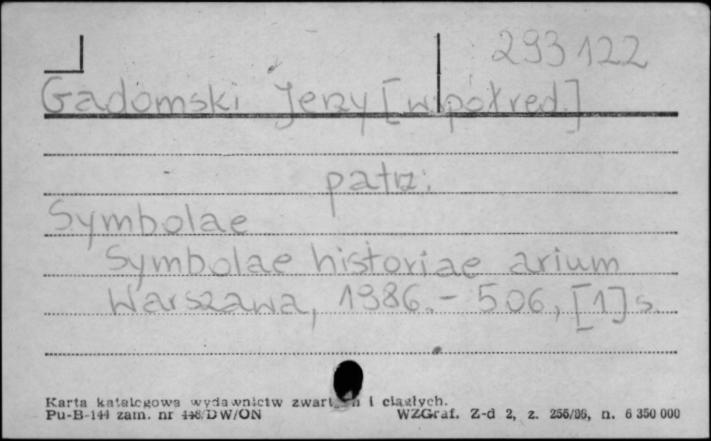 293122
Gadomski Jerzy [współred.]
patrz:
Symbolae
Symbolae historiae arium
Warszawa, 1986. - 506, [1] s.
Karta katalogowa wydawnictw zwartych i ciągłych.
Pu-B-144 zam. nr /DW/ON WZGraf. Z-d 2, z. 256/86, n. 6 350 000